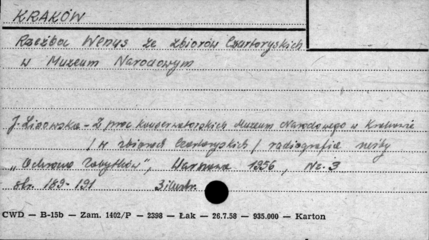 KRAKÓW
Rzeźba Wenus ze zbiorów Czartoryskich
w Muzeum Narodowym
J. Lipowska - Z prac konserwatorskich Muzeum Narodowego w Krakowie
/ w zbiorach Czartoryskich / radiografia rzeźby
„Ochrona Zabytków", Warszawa 1956, Nr. 3
str. 189-191 3 ilustr.
CWD — B-15b — Zam. 1402/P — 2398 — Łak — 26.7.58 — 935.000 — Karton